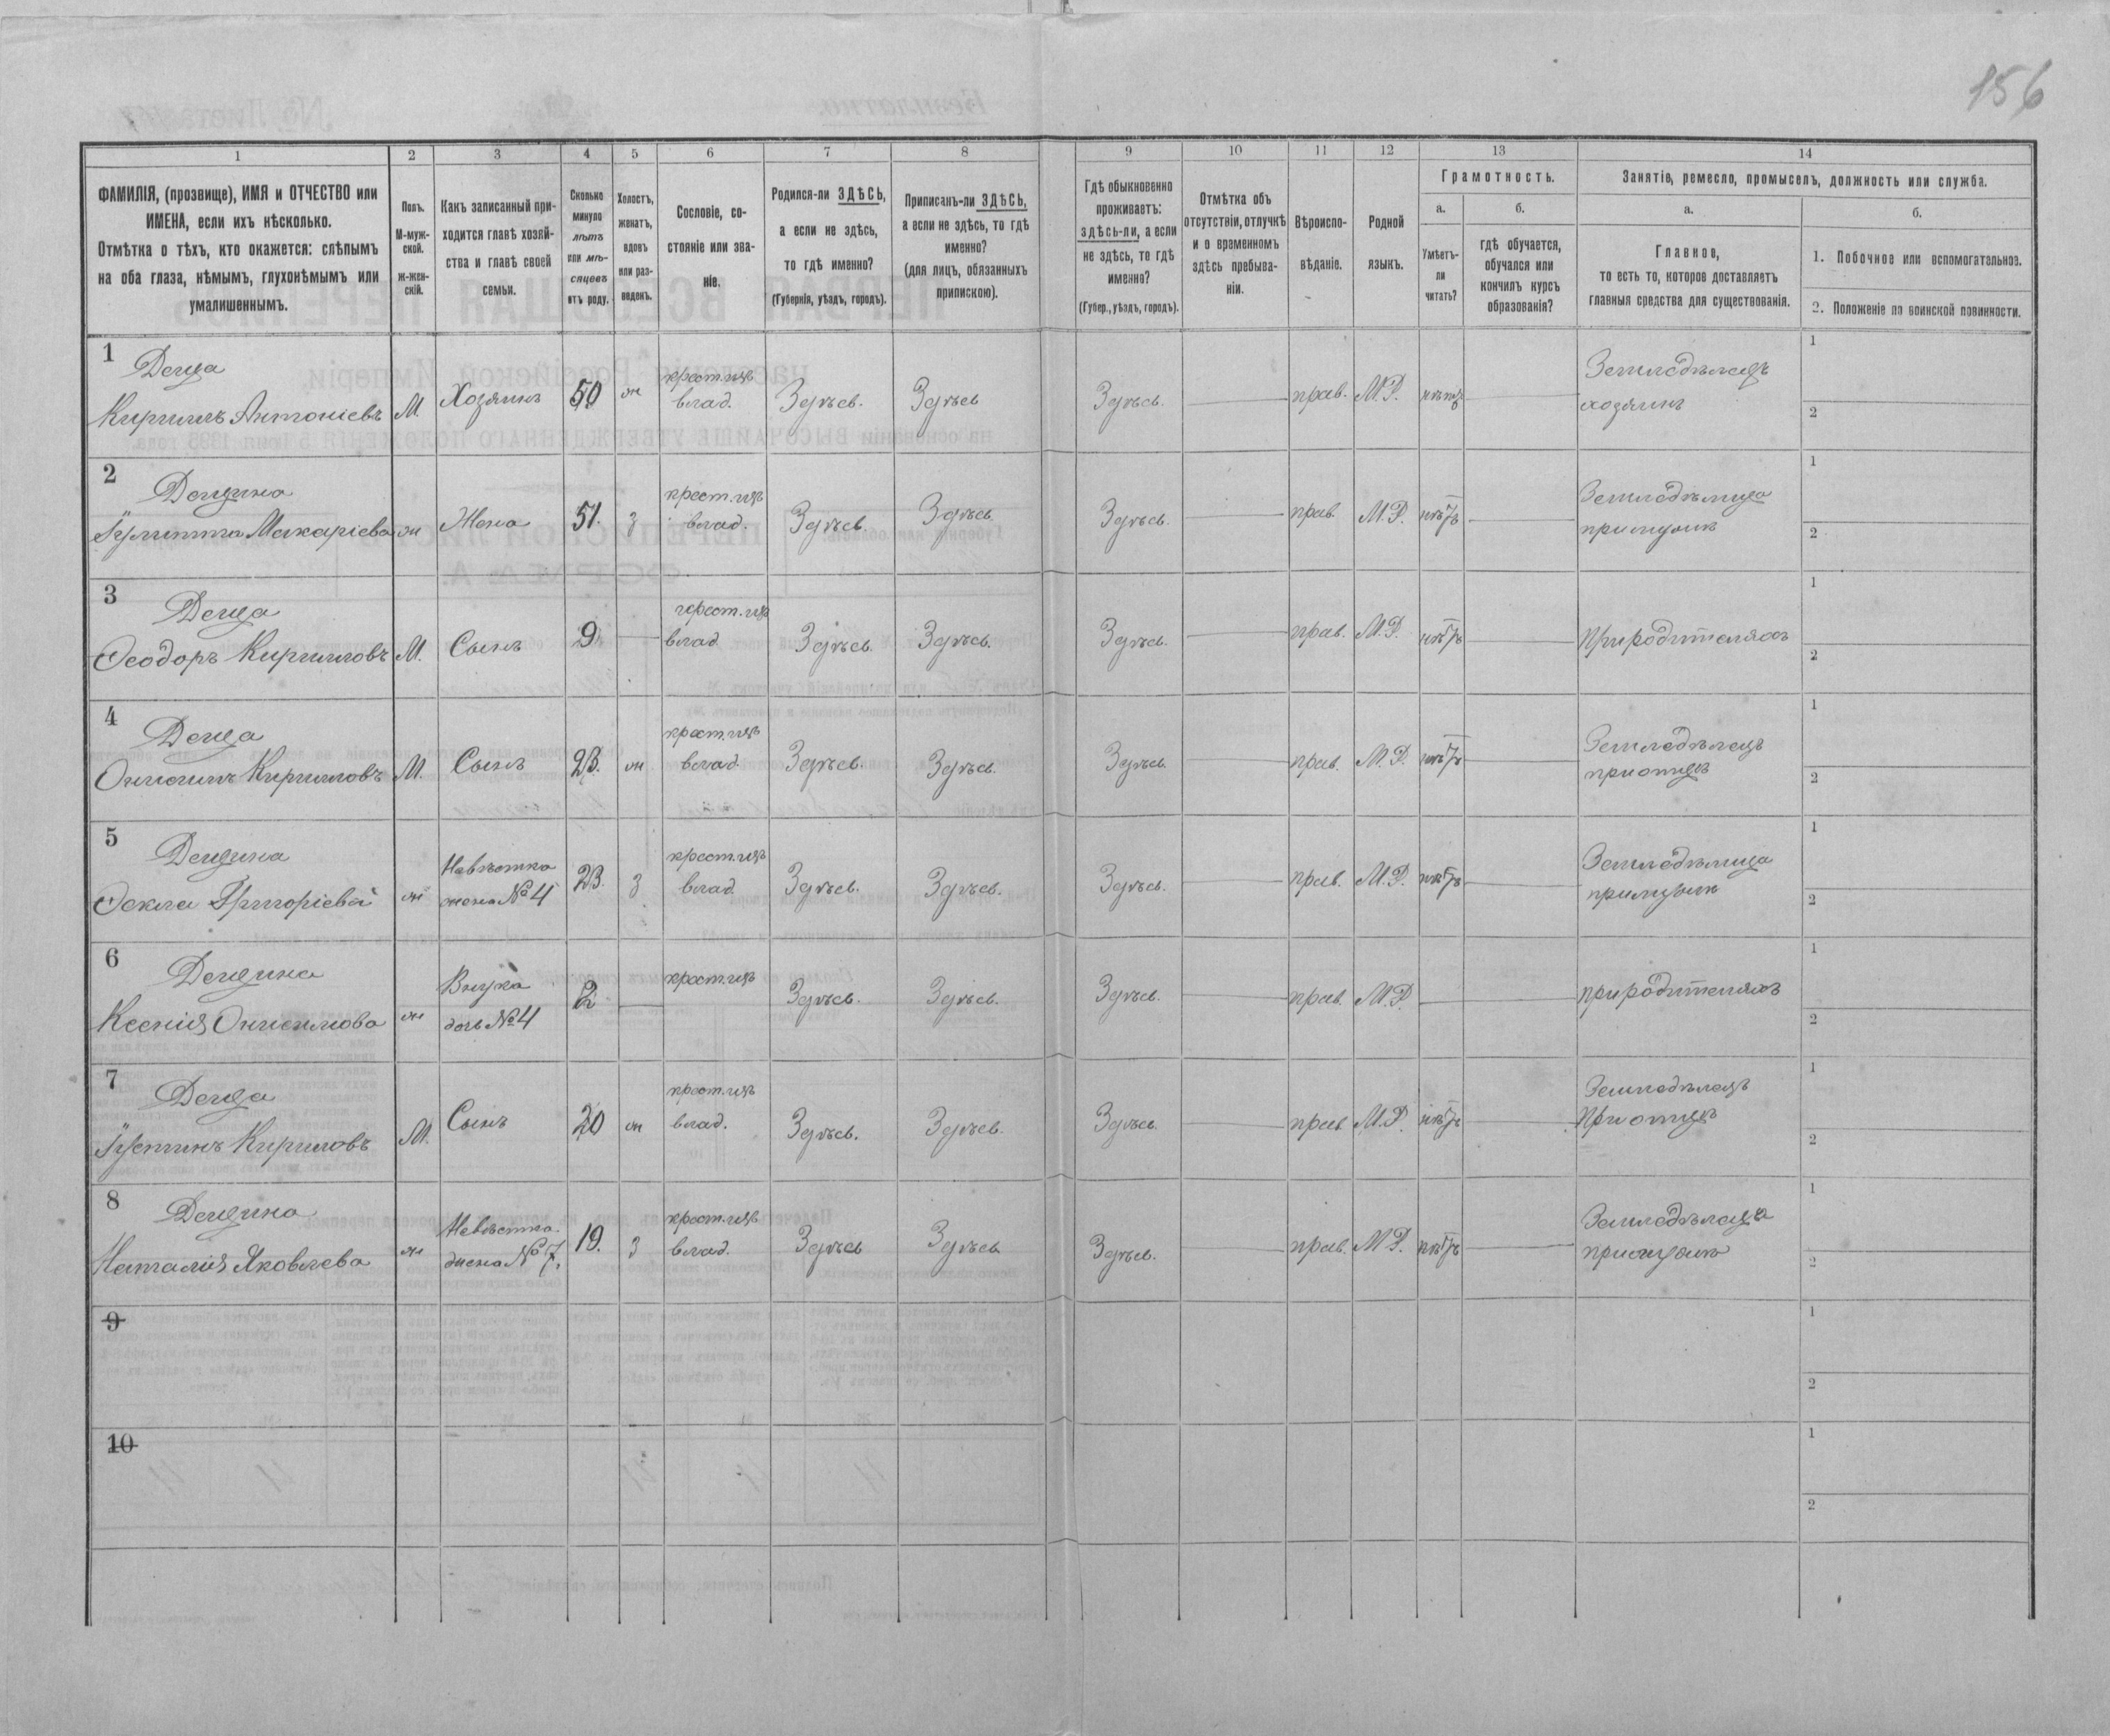 156
1 2 3 4 5 6 7 8 9 10 11 12 13 14
ФАМИЛІЯ, (прозвище), ИМЯ и ОТЧЕСТВО или
ИМЕНА, если ихъ нѣсколько.
Отмѣтка о тѣхъ, кто окажется: слѣпымъ
на оба глаза, нѣмымъ, глухонѣмымъ или
умалишеннымъ.
Полъ.
М-муж-
ской.
ж-жен-
скій.
Какъ записанный при-
ходится главѣ хозяй-
ства и главѣ своей
семьи.
Сколько
минуло
лѣтъ
или мѣ-
сяцевъ
отъ роду.
Холостъ,
женатъ,
вдовъ
или раз-
веденъ.
Сословіе, со-
стояніе или зва-
ніе.
Родился-ли ЗДѢСЬ,
а если не здѣсь,
то гдѣ именно?
(Губернія, уѣздъ, городъ).
Приписанъ-ли ЗДѢСЬ,
а если не здѣсь, то гдѣ
именно?
(для лицъ, обязанныхъ
припискою).
Гдѣ обыкновенно
проживаетъ:
здѣсь-ли, а если
не здѣсь, то гдѣ
именно?
(Губер., уѣздъ, городъ).
Отмѣтка объ
отсутствіи, отлучкѣ
и о временномъ
здѣсь пребыва-
ніи.
Вѣроиспо-
вѣданіе.
Родной
языкъ.
Грамотность.
а.
Умѣетъ-
ли
читать?
б.
гдѣ обучается,
обучался или
кончилъ курсъ
образованія?
Занятіе, ремесло, промыселъ, должность или служба.
а.
Главное,
то есть то, которое доставляетъ
главныя средства для существованія.
б.
1. Побочное или вспомогательное.
2. Положеніе по воинской повинности.
1
Деща
Кириллъ Антоніевъ М Хозяинъ 50 ж крест. изъ
влад. Здѣсь. Здѣсь Здѣсь. прав. М.Р. нѣтъ Земледѣлецъ
хозяинъ
1
2
2
Дещина
Іулитта Макаріева ж Жена 51. З крест. изъ
влад. Здѣсь. Здѣсь. Здѣсь. прав. М.Р. нѣтъ Земледѣлица
при мужѣ
1
2
3
Деща
Ѳеодоръ Кирилловъ М. Сынъ 9 крест. изъ
влад Здѣсь. Здѣсь. Здѣсь. прав. М.Р. нѣтъ При родителяхъ
1
2
4
Деща
Онисимъ Кирилловъ М. Сынъ 23. ж крест. изъ
влад. Здѣсь. Здѣсь. Здѣсь. прав. М.Р. нѣтъ Земледѣлецъ
при отцѣ
1
2
5
Дещина
Ѳекла Григоріева ж Невѣстка
жена №4 23. З крест. изъ
влад. Здѣсь. Здѣсь. Здѣсь. прав. М.Р. нѣтъ Земледѣлица
при мужѣ
1
2
6
Дещина
Ксенія Онисимова ж Внука
дочь №4 2 крест. изъ Здѣсь. Здѣсь. Здѣсь. прав. М.Р. при родителяхъ
1
2
7
Деща
Іустинъ Кириловъ М. Сынъ 20 ж крест. изъ
влад. Здѣсь. Здѣсь. Здѣсь. прав М.Р. нѣтъ Земледѣлецъ
При отцѣ
1
2
8
Дещина
Наталія Яковлева ж Невѣстка.
жена №7. 19. З крест. изъ
влад. Здѣсь Здѣсь Здѣсь. прав. М.Р. нѣтъ Земледѣлеца
при мужѣ
1
2
9
1
2
10
1
2